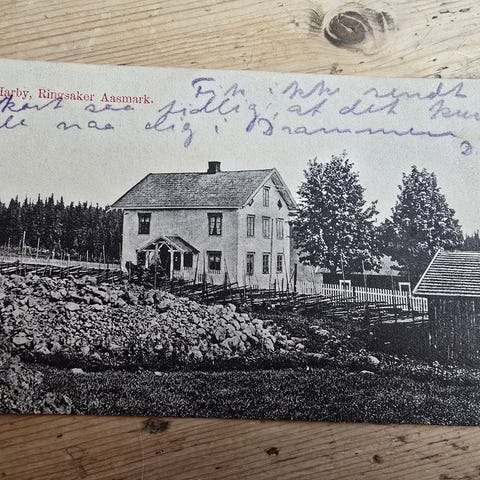 Harby, Ringsaker Aasmark.
Fik ikke sendt
kort saa tidlig, at det kun
naa dig i Drammen
D.